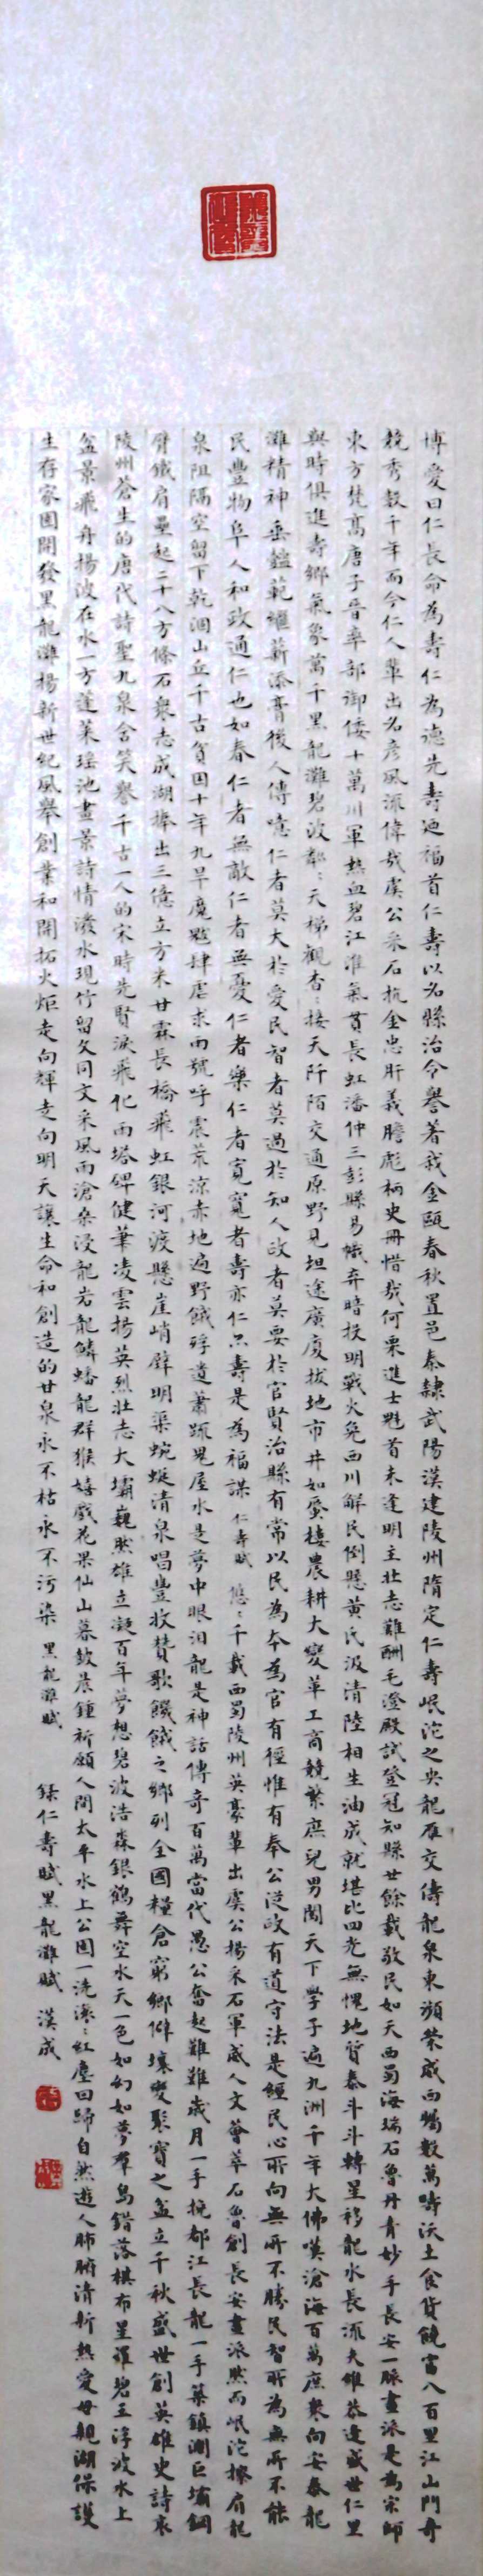 博愛曰仁長命為壽仁為德先壽迺福首仁壽以名縣治令譽著我金甌春秋置邑秦隸武陽漢建陵州隋定仁壽岷沱之央龍雁交儔龍泉東瀕榮威西矚數萬疇沃土食貨饒富八百里江山門奇
競秀數千年而今仁人輩出名彥風流偉哉虞公采石抗金忠肝義膽彪柄史冊惜哉何栗進士魁首未逢明主壯志難酬毛澄殿試登冠知縣廿餘載敬民如天西蜀海瑞石魯丹青妙手長安一脈畫派是為宗師
東方梵高唐子晉率部御倭十萬川軍熱血碧江淮氣貫長虹潘仲三彭縣易幟弃暗投明戰火免西川解民倒懸黃氏汲清陸相生油成就堪比四光無愧地質泰斗斗轉星移龍水長流大雄恭逢盛世仁里
與時俱進壽鄉氣象萬千黑龍灘碧波鄰:天梯觀杳:接天阡陌交通原野見坦途廣廈拔地市井如蜃樓農耕大變革工商競繁庶兒男闖天下學子遍九洲千年大佛嘆滄海百萬庶眾向安泰龍
灘精神垂鎧範耀薪添膏後人傳噫仁者莫大於愛民智者莫過於知人政者莫要於官賢治縣有常以民為本為官有徑惟有奉公從政有道守法是經民心所向無所不勝民智所為無所不能
民豐物阜人和政通仁也如春仁者無敵仁者無憂仁者樂仁者寬寬者壽亦仁亦壽是為福謀 仁壽賦 悠:千載西蜀陵州英豪輩出虞公揚采石軍威人文薈萃石魯創長安畫派然而岷沱擦肩龍
泉阻隔空留下乾涸山丘千古貧困十年九旱魔魃肆虐求雨號呼震荒涼赤地遍野餓殍遺蕭疏鬼屋水是夢中眼泪龍是神話傳奇百萬當代愚公奮起難難歲月一手挽都江長龍一手築鎮澗巨壩鋼
臂鐵肩壘起二十八方條石眾志成湖捧出三億立方米甘霖長橋飛虹銀河渡懸崖峭壁明渠蜿蜒清泉唱豐收贊歌饑餓之鄉列全國糧倉窮鄉僻壤變聚寶之盆立千秋盛世創英雄史詩哀
陵州蒼生的唐代詩聖九泉含笑譽千古一人的宋時先賢淚飛化雨塔碑健筆凌雲揚英烈壯志大壩巍然雄立凝百年夢想碧波浩淼銀鶴舞空水天一色如幻如夢羣島錯落棋布星羅碧玉浮波水上
盆景飛舟揚波在水一方蓬萊瑤池畫景詩情潑水現竹留文同文采風雨滄桑浸龍岩龍鱗蟠龍群猴嬉戲花果仙山暮鼓晨鍾祈願人間太平水上公園一洗滾:紅塵回歸自然遊人肺腑清新熱愛母親湖保護
生存家園開發黑龍灘揚新世紀風舉創業和開拓火炬走向輝走向明天讓生命和創造的甘泉永不枯永不污染 黑龍灘賦 錄仁壽賦黑龍灘賦 漢成